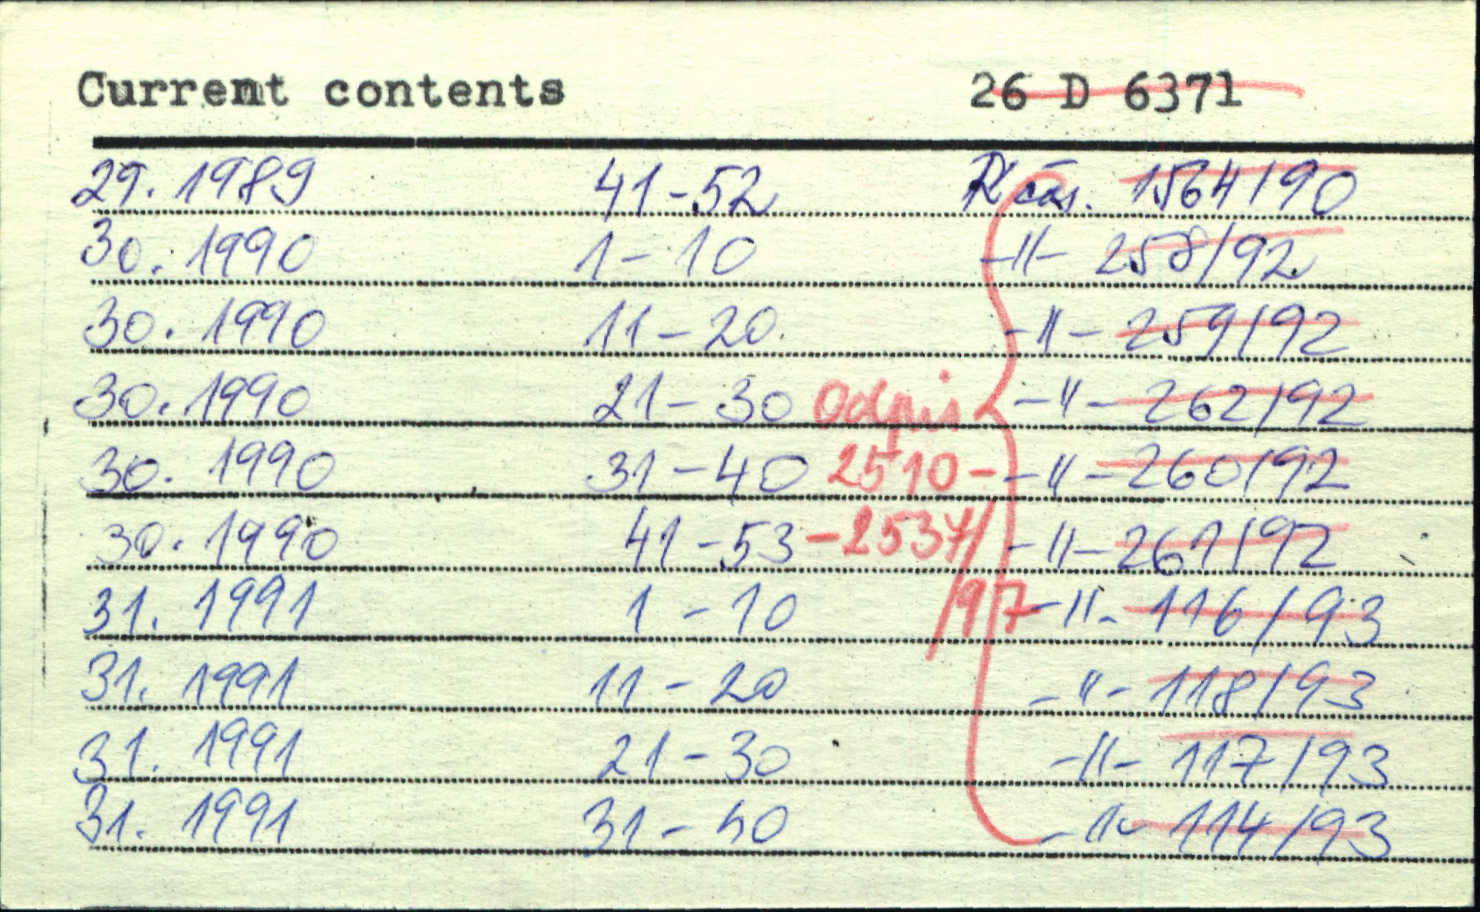 Current contents 26 D 6371
29. 1989 41-52 R čas. 1564/90
30. 1990 1-10 -11- 258/92
30. 1990 11-20 -11- 259/92
30. 1990 21-30 Odpis -11- 262/92
30. 1990 31-40 2510- -11- 260/92
30. 1990 41-53 -2537/ -11- 261/92
31. 1991 1-10 /97 -11- 116/93
31. 1991 11-20 -11- 118/93
31. 1991 21-30 -11- 117/93
31. 1991 31-40 -11- 114/93